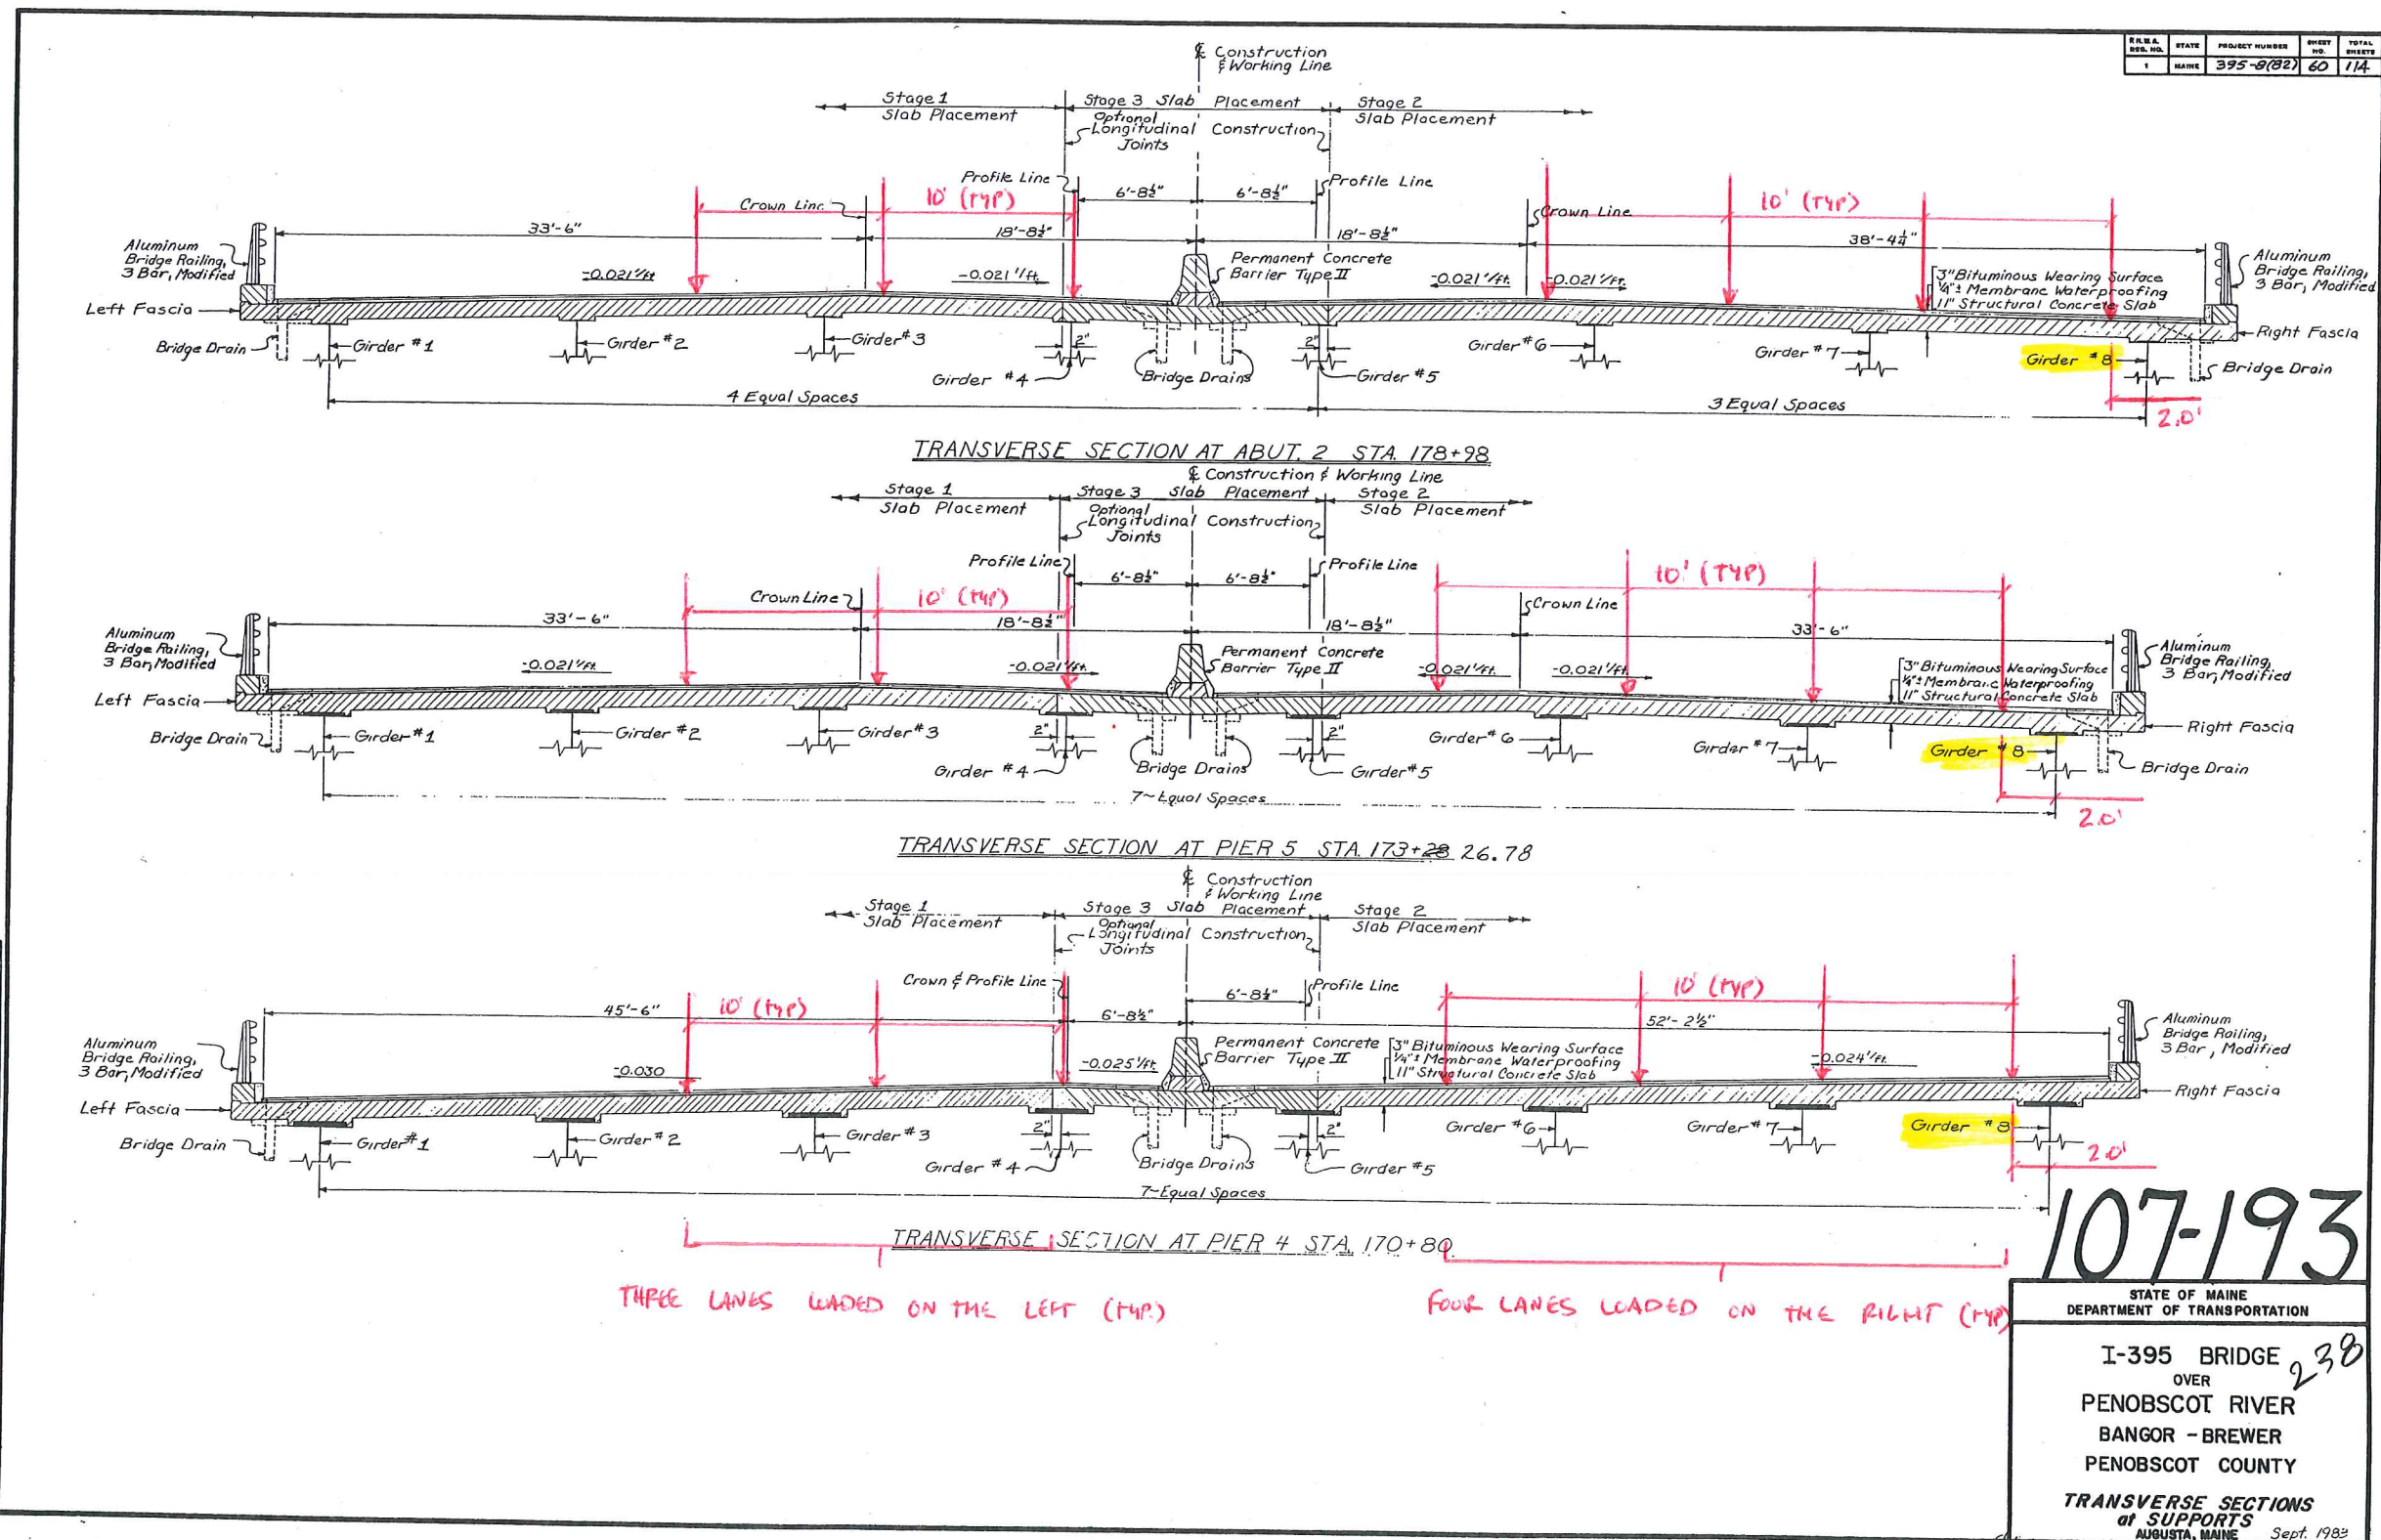 F.H.W.A. REG. NO. STATE PROJECT NUMBER SHEET NO. TOTAL SHEETS
1 MAINE 395-8(82) 60 114
℄ Construction
& Working Line
Stage 1
Slab Placement
Stage 3 Slab Placement
Stage 2
Slab Placement
Optional
Longitudinal Construction
Joints
Profile Line
6'-8½"
6'-8½"
Profile Line
Crown Line
10' (TYP)
Crown Line
10' (TYP)
33'-6"
18'-8½"
18'-8½"
38'-4¼"
Aluminum
Bridge Railing,
3 Bar, Modified
-0.021'/ft.
-0.021'/ft.
Permanent Concrete
Barrier Type II
-0.021'/ft.
-0.021'/ft.
3" Bituminous Wearing Surface
¼"± Membrane Waterproofing
11" Structural Concrete Slab
Aluminum
Bridge Railing,
3 Bar, Modified
Left Fascia
Right Fascia
Bridge Drain
Girder #1
Girder #2
Girder #3
2"
Girder #4
Bridge Drains
2"
Girder #5
Girder #6
Girder #7
Girder #8
Bridge Drain
4 Equal Spaces
3 Equal Spaces
2.0'
TRANSVERSE SECTION AT ABUT. 2 STA. 178+98
℄ Construction & Working Line
Stage 1
Slab Placement
Stage 3 Slab Placement
Stage 2
Slab Placement
Optional
Longitudinal Construction
Joints
Profile Line
6'-8½"
6'-8½"
Profile Line
10' (TYP)
Crown Line
10' (TYP)
Crown Line
33'-6"
18'-8½"
18'-8½"
33'-6"
Aluminum
Bridge Railing,
3 Bar, Modified
-0.021'/ft.
-0.021'/ft.
Permanent Concrete
Barrier Type II
-0.021'/ft.
-0.021'/ft.
3" Bituminous Wearing Surface
¼"± Membrane Waterproofing
11" Structural Concrete Slab
Aluminum
Bridge Railing,
3 Bar, Modified
Left Fascia
Right Fascia
Bridge Drain
Girder #1
Girder #2
Girder #3
2"
Girder #4
Bridge Drains
2"
Girder #5
Girder #6
Girder #7
Girder #8
Bridge Drain
7~Equal Spaces
2.0'
TRANSVERSE SECTION AT PIER 5 STA. 173+28 26.78
℄ Construction
& Working Line
Stage 1
Slab Placement
Stage 3 Slab Placement
Stage 2
Slab Placement
Optional
Longitudinal Construction
Joints
Crown & Profile Line
6'-8½"
Profile Line
10' (TYP)
45'-6"
10' (TYP)
6'-8½"
52'-2½"
Aluminum
Bridge Railing,
3 Bar, Modified
-0.030
-0.025'/ft.
Permanent Concrete
Barrier Type II
3" Bituminous Wearing Surface
¼"± Membrane Waterproofing
11" Structural Concrete Slab
-0.024'/ft.
Aluminum
Bridge Railing,
3 Bar, Modified
Left Fascia
Right Fascia
Bridge Drain
Girder #1
Girder #2
Girder #3
2"
Girder #4
Bridge Drains
2"
Girder #5
Girder #6
Girder #7
Girder #8
2.0'
7~Equal Spaces
TRANSVERSE SECTION AT PIER 4 STA. 170+80
THREE LANES LOADED ON THE LEFT (TYP.)
FOUR LANES LOADED ON THE RIGHT (TYP)
107-193
STATE OF MAINE
DEPARTMENT OF TRANSPORTATION
I-395 BRIDGE 238
OVER
PENOBSCOT RIVER
BANGOR - BREWER
PENOBSCOT COUNTY
TRANSVERSE SECTIONS
at SUPPORTS
AUGUSTA, MAINE Sept. 1983